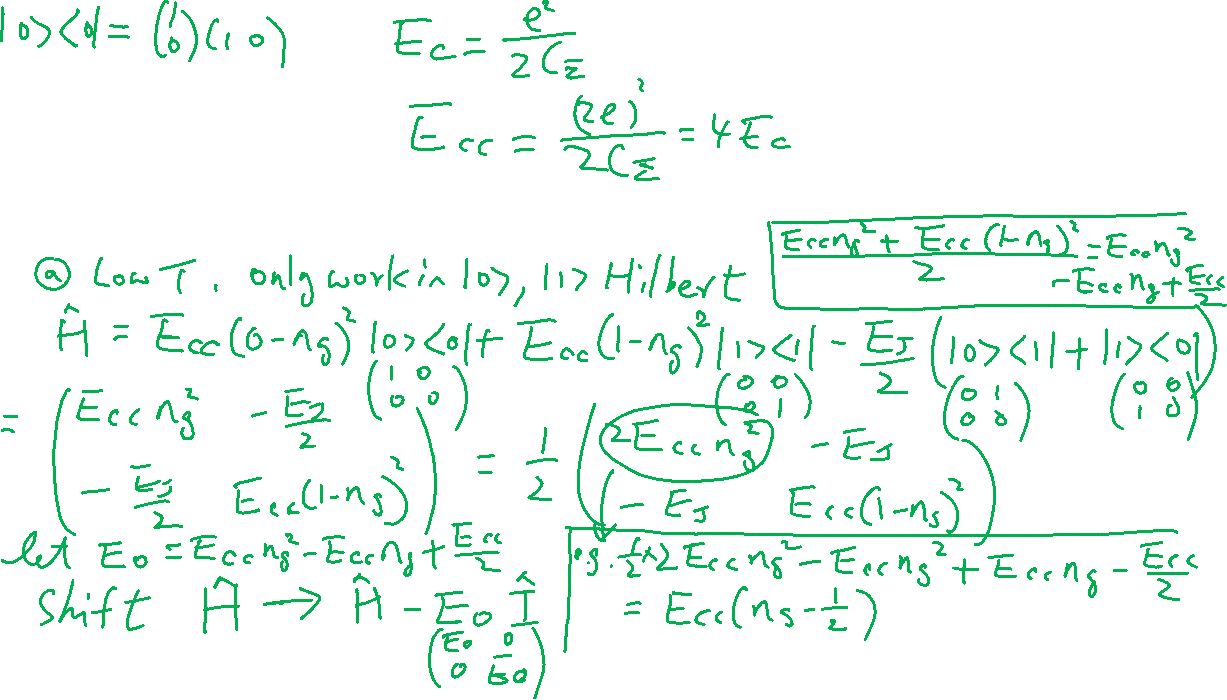 |0><0| = (1 0)(1 0)    E_c = e² / 2C_Σ
E_cc = (2e)² / 2C_Σ = 4E_c
(E_cc n_g² + E_cc(1-n_g)²) / 2 = E_cc n_g² - E_cc n_g + E_cc/2
@ Low T, only work in |0>, |1> Hilbert
Ĥ = E_cc(0-n_g)² |0><0| + E_cc(1-n_g)² |1><1| - E_J/2 (|0><1| + |1><0|)
(1 0 / 0 0)    (0 0 / 0 1)    (0 1 / 0 0)    (0 0 / 1 0)
= (E_cc n_g²    -E_J/2 / -E_J/2    E_cc(1-n_g)²) = 1/2 (2E_cc n_g²    -E_J / -E_J    E_cc(1-n_g)²)
let E_0 = E_cc n_g² - E_cc n_g + E_cc/2
e.g. 1/2 × 2 E_cc n_g² - E_cc n_g² + E_cc n_g - E_cc/2
= E_cc(n_g - 1/2)
shift Ĥ → Ĥ - E_0 Î
(E_0 0 / 0 E_0)